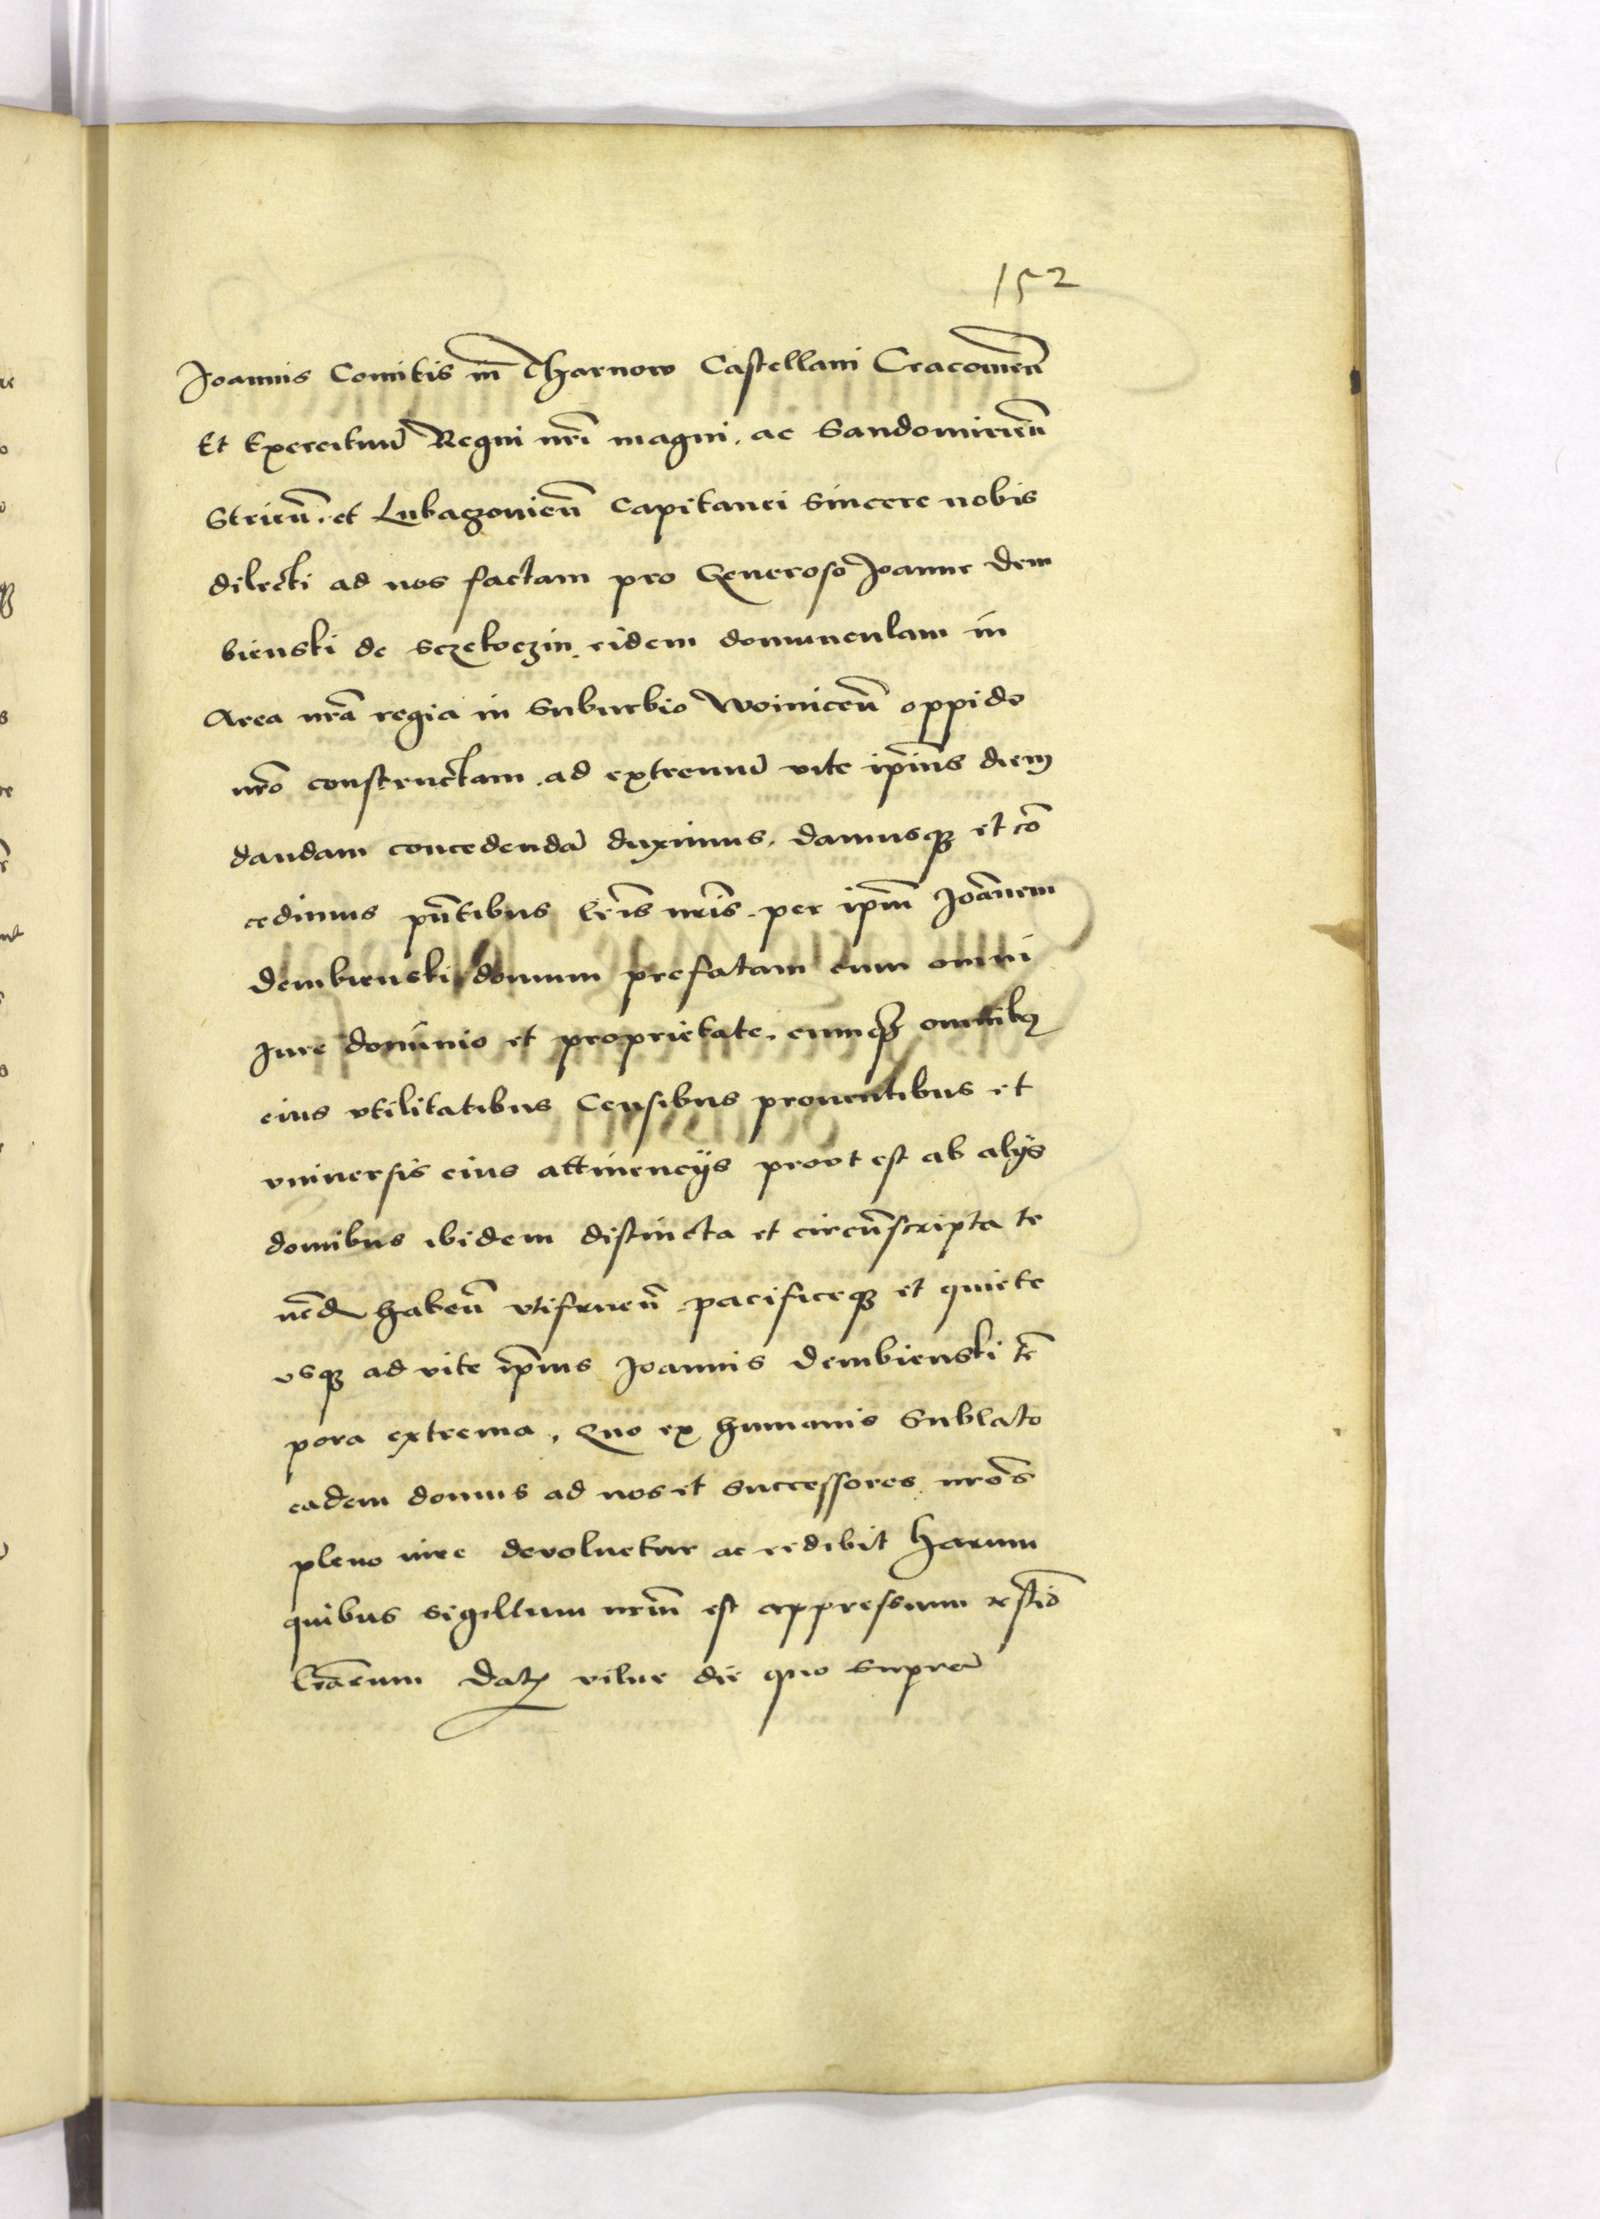 152
Joannis Comitis in Tharnow Castellani Cracovieñ
Et Exercituũ Regni nrĩ magni. ac Sandomirieñ
Strieñ. et Lubaczovieñ Capitanei Sincere nobis
dilecti ad nos factam pro Generoso Joanne Dem
bienski de Sczekoczin eidem domunculam in
Area nrã regia in Suburbio Woiniceñ oppido
nrõ constructam ad extremũ vite ipĩus diem
dandam concedendã duximus. damusqȝ et cõ
cedimus pñtibus lrĩs nrĩs. per ipm̃ Joãnnem
Dembienski domum prefatam cum omni
Jure dominio et proprietate. cumqȝ omnibȝ
eius vtilitatibus Censibus prouentibus et
vniuersis eius attinencijs prout est ab alijs
domibus ibidem distincta et circũscripta te
neñd habeñ vtifrueñ. pacificeqȝ et quiete
vsqȝ ad vite ip̃ius Joannis Dembienski tẽ
pora extrema, Quo ex humanis Sublato
eadem domus ad nos et Successores nrõs
pleno iure devoluetur ac redibit Harum
quibus Sigillum nrm̃ est appressum testiõ
lrãrum Datȝ vilne die quo Suprã